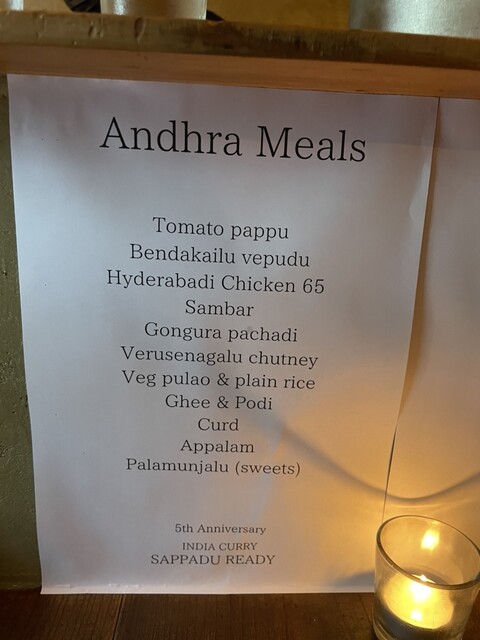 Andhra Meals
Tomato pappu
Bendakailu vepudu
Hyderabadi Chicken 65
Sambar
Gongura pachadi
Verusenagalu chutney
Veg pulao & plain rice
Ghee & Podi
Curd
Appalam
Palamunjalu (sweets)
5th Anniversary
INDIA CURRY
SAPPADU READY